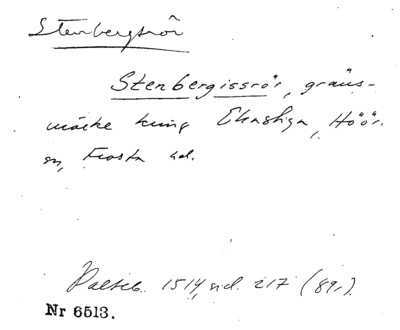 Stenbergsrör
Stenbergissrör, gräns-
märke kring Ekastiga, Höör.
sn, Frosta hd.
Palteb. 1514, sid. 217 (89r).
Nr 6513.